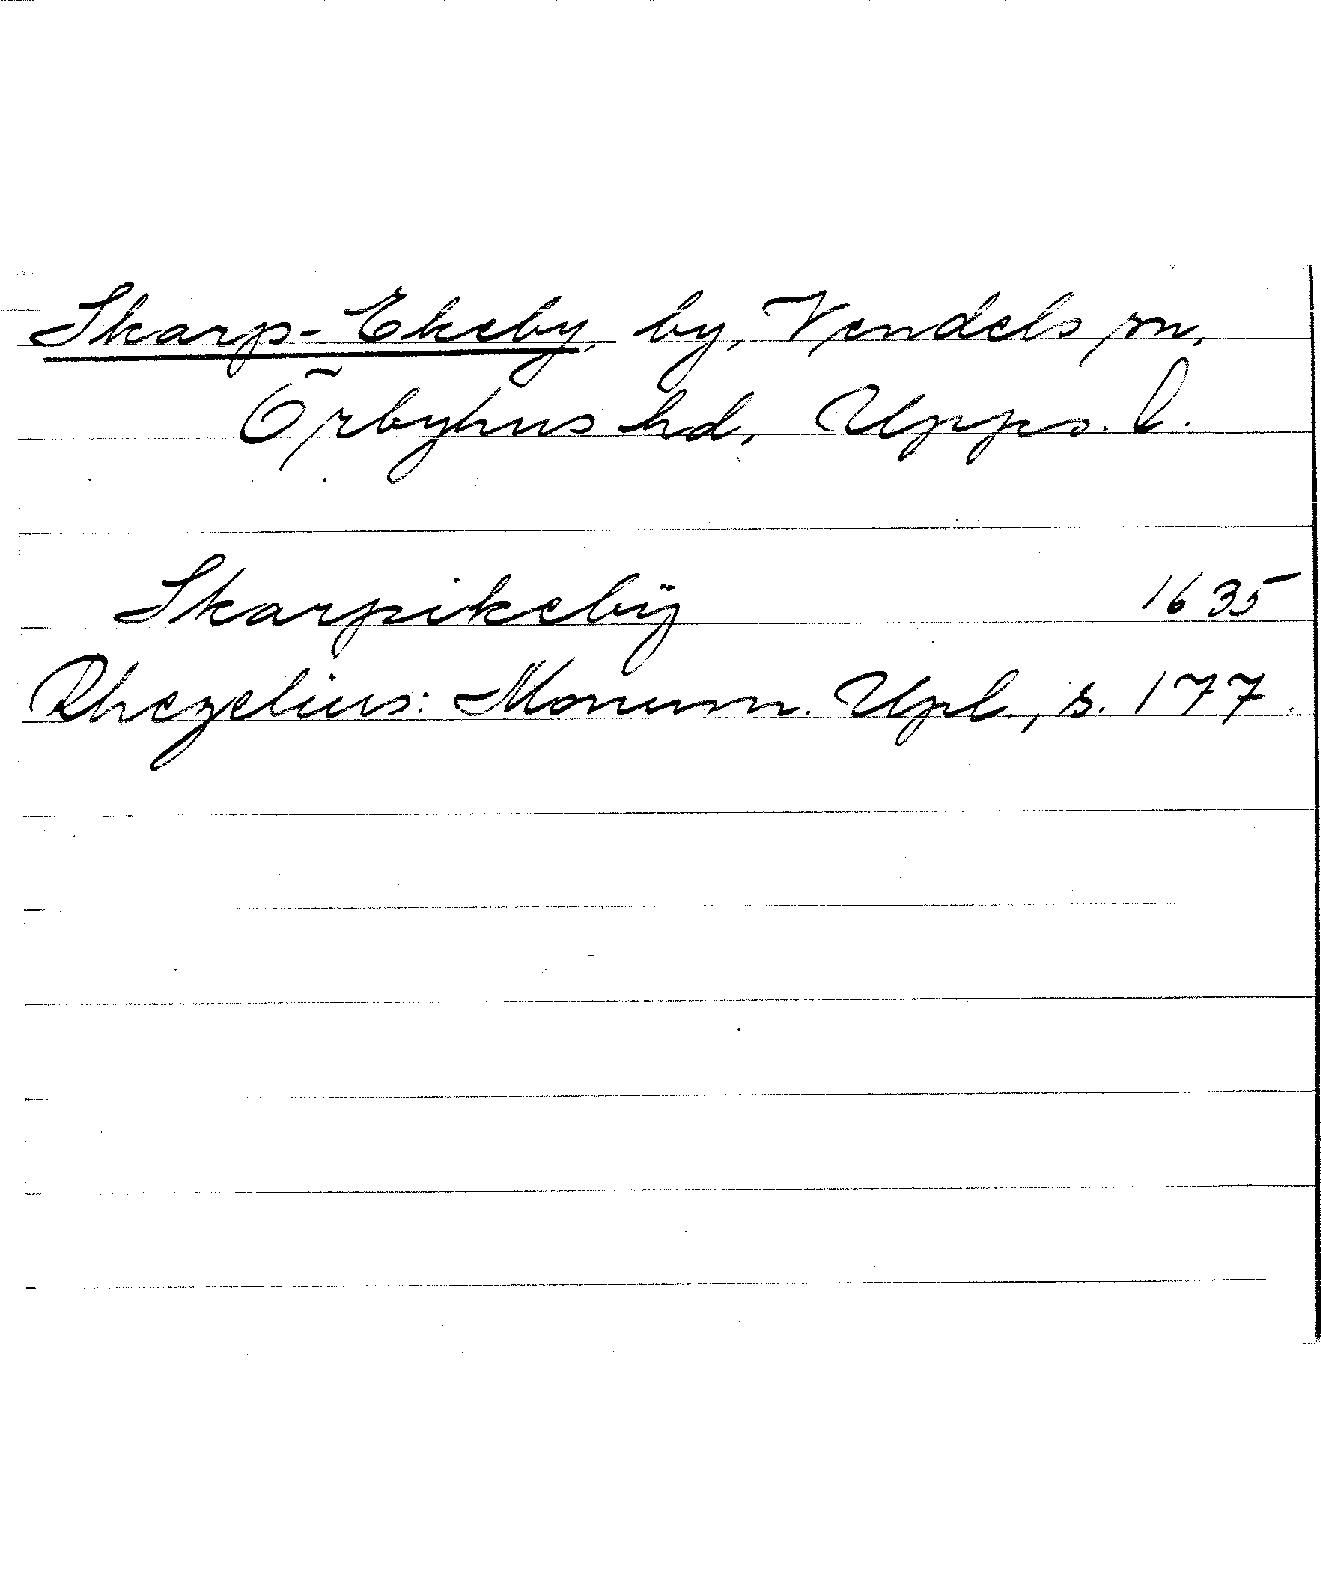 Skarp-Ekeby, by, Vendels sn,
Örbyhus hd, Upps. l.
Skarpikebÿ 1635
Rhezelius: Monum. Upl., s. 177.